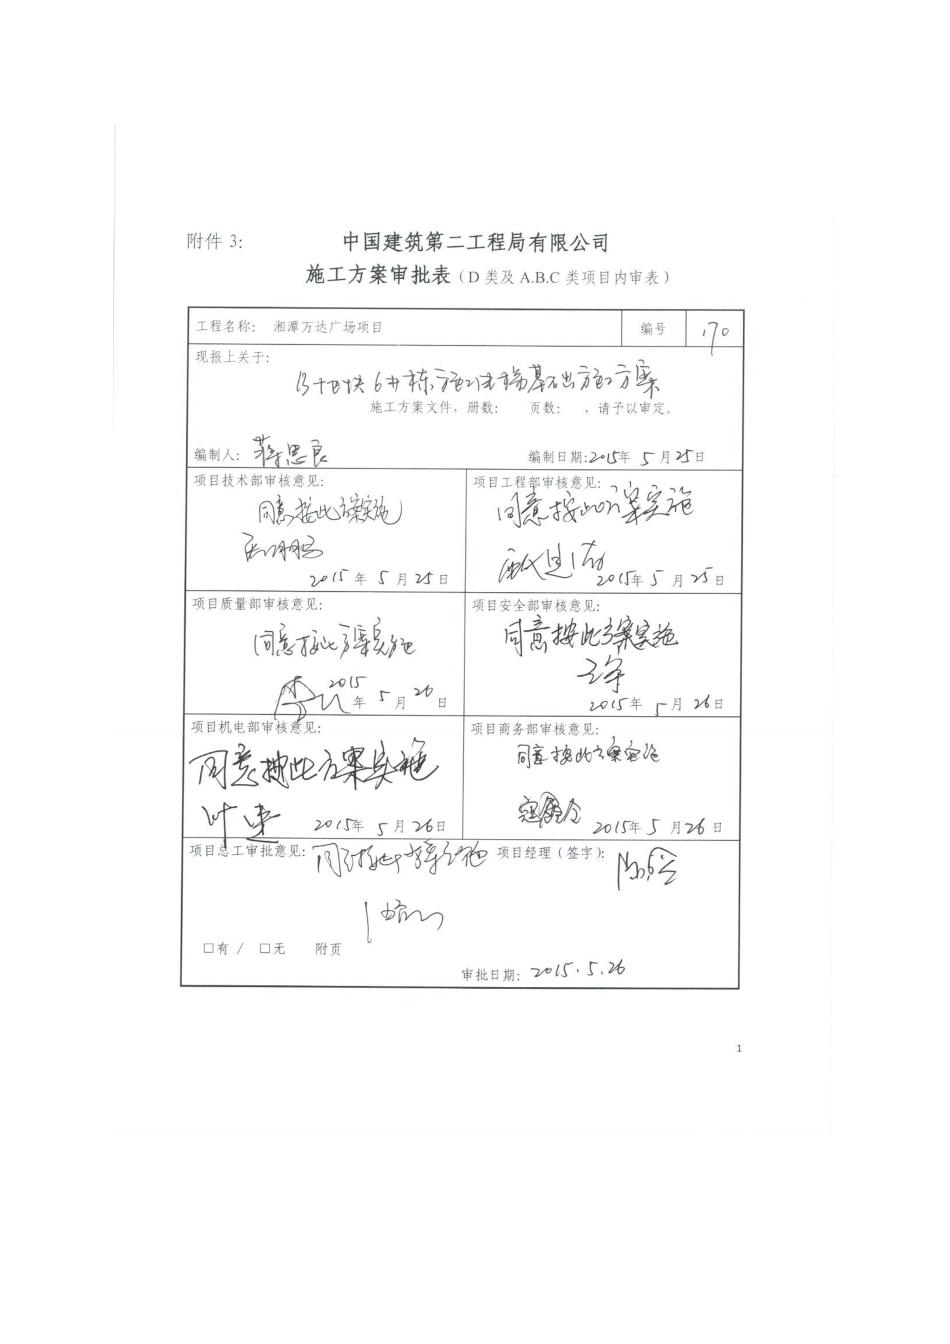 附件 3:
中国建筑第二工程局有限公司
施工方案审批表（D 类及 A.B.C 类项目内审表）
工程名称: 湘潭万达广场项目 编号 170
现报上关于:
B地块6#栋施工电梯基础施工方案
施工方案文件，册数: 页数: ，请予以审定。
编制人: 蒋思良 编制日期:2015年 5月25日
项目技术部审核意见: 项目工程部审核意见:
同意按此方案实施 同意按此方案实施
2015年 5月25日 2015年 5月25日
项目质量部审核意见: 项目安全部审核意见:
同意按此方案实施 同意按此方案实施
2015年 5月26日 2015年 5月26日
项目机电部审核意见: 项目商务部审核意见:
同意按此方案实施 同意按此方案实施
2015年 5月26日 2015年 5月26日
项目总工审批意见: 同意按此方案实施 项目经理（签字）:
□有 / □无 附页
审批日期: 2015.5.26
1